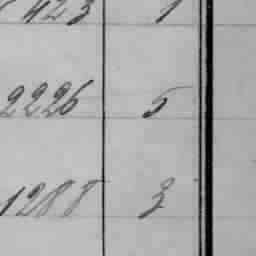 423 1
2226 5
1288 3